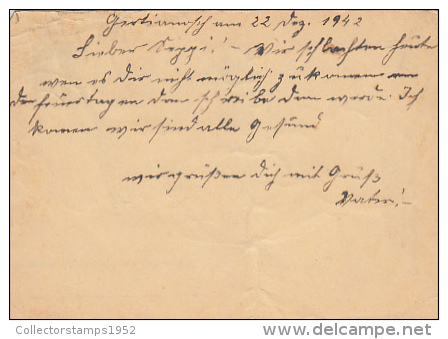 Gertianosch am 22 Dez. 1942
Lieber Seppi! – Wir schlachten heute
wen es dir nicht möglich zukomen an
der feuertagen dan schreibe dan werde Ich
komen wir sind alle gesund
wir grüßen dich mit Gruß
Vater! –
Collectorstamps1952
delcampe.net